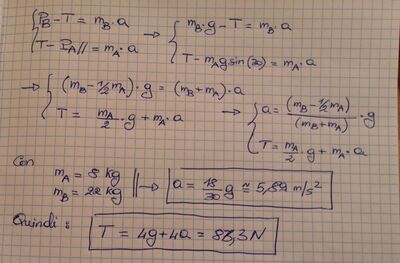 { P_B - T = m_B · a
T - P_A// = m_A · a
→ { m_B · g - T = m_B · a
T - m_A g sin(30) = m_A · a
→ { (m_B - 1/2 m_A) · g = (m_B + m_A) · a
T = m_A/2 · g + m_A · a
→ { a = (m_B - 1/2 m_A)/(m_B + m_A) · g
T = m_A/2 · g + m_A · a
Con
m_A = 8 kg
m_B = 22 kg
|| → a = 18/30 g ≅ 5,89 m/s²
Quindi : T = 4g + 4a =